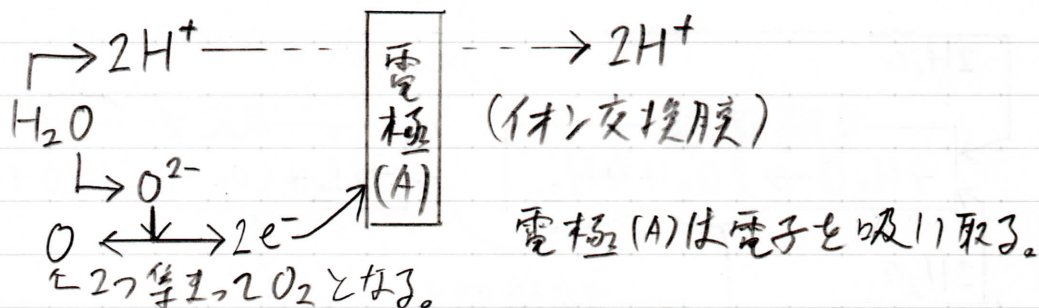 → 2H⁺ --- → 2H⁺
H₂O
電極(A)
(イオン交換膜)
→ O²⁻
O ↔ 2e⁻
電極(A)は電子を吸い取る。
↑2つ集まってO₂となる。